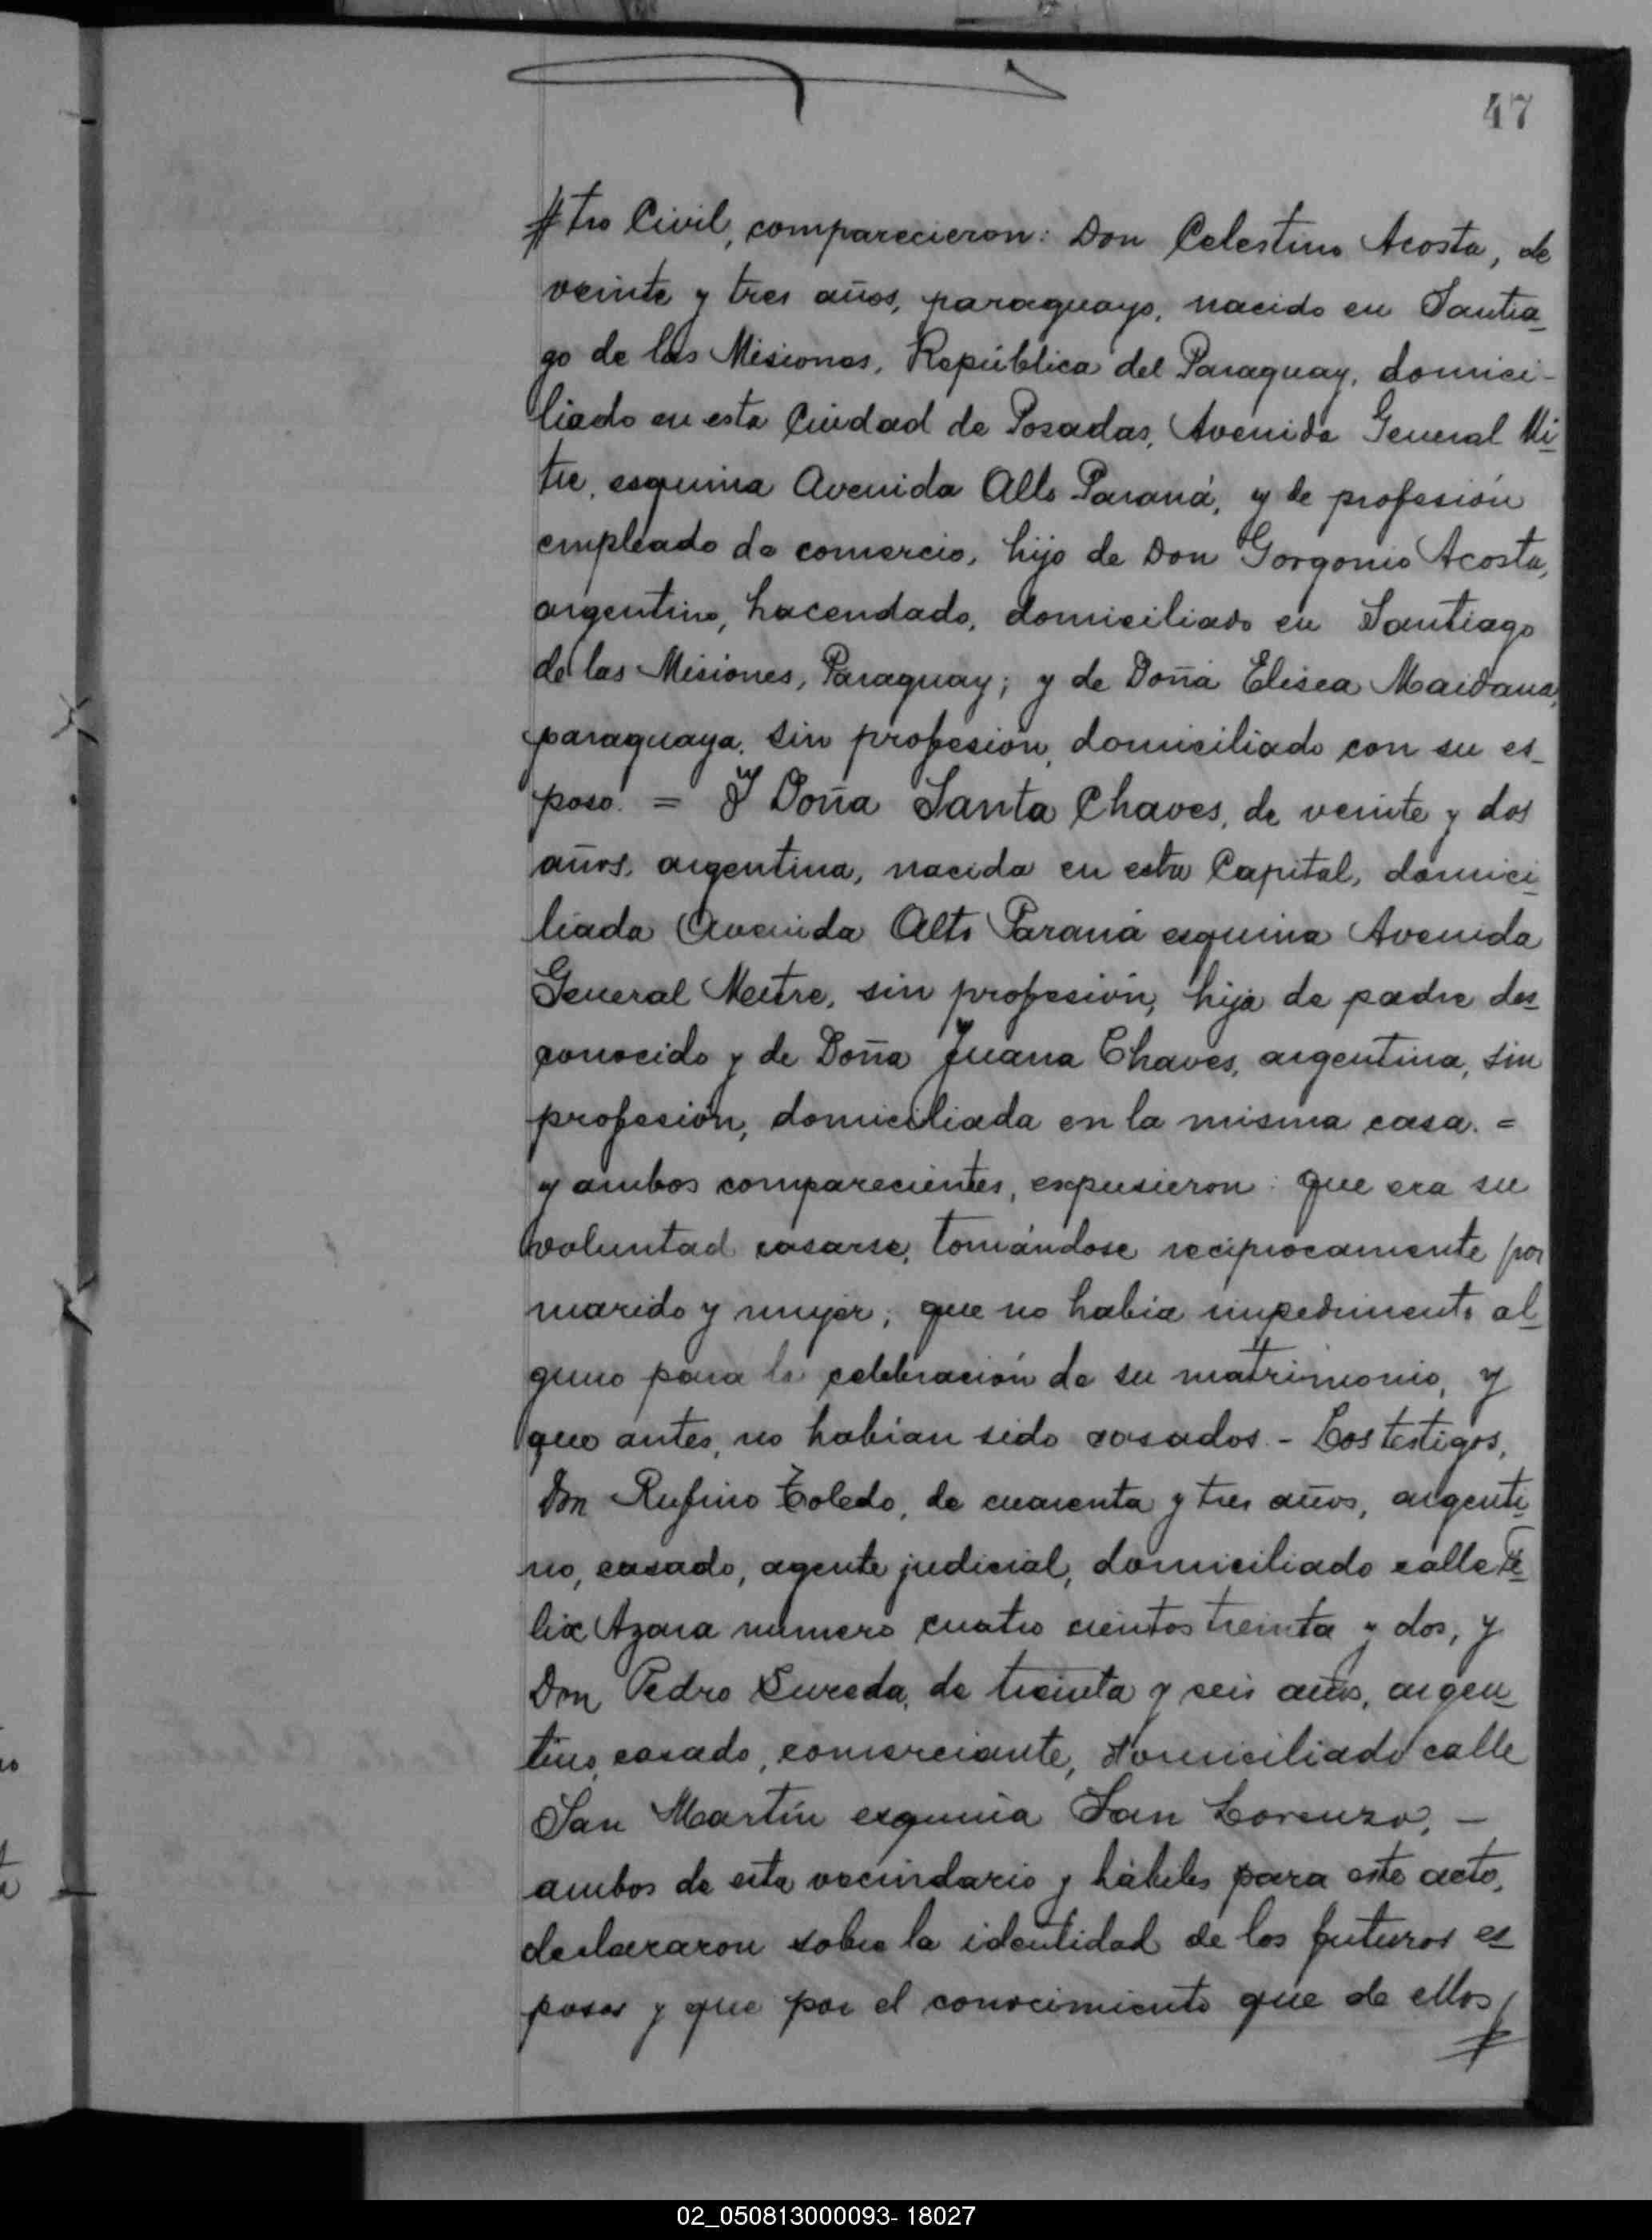 47
#tro Civil, comparecieron: Don Celestino Acosta, de
veinte y tres años, paraguayo, nacido en Santia_
go de las Misiones, República del Paraguay, domici-
liado en esta Ciudad de Posadas, Avenida General Mi_
tre, esquina Avenida Alto Paraná, y de profesión
empleado de comercio, hijo de Don Gorgonio Acosta,
argentino, hacendado, domiciliado en Santiago
de las Misiones, Paraguay; y de Doña Elisea Maidana,
paraguaya, sin profesión, domiciliado con su es_
poso. = Y Doña Santa Chaves, de veinte y dos
años, argentina, nacida en esta Capital, domici_
liada Avenida Alto Paraná esquina Avenida
General Mitre, sin profesión, hija de padre des_
conocido y de Doña Juana Chaves, argentina, sin
profesión, domiciliada en la misma casa. =
y ambos comparecientes, expusieron: que era su
voluntad casarse, tomándose recíprocamente por
marido y mujer; que no había impedimento al_
guno para la celebración de su matrimonio, y
que antes, no habían sido casados. - Los testigos,
Don Rufino Toledo, de cuarenta y tres años, argenti_
no, casado, agente judicial, domiciliado calle Fé_
lix Azara numero cuatro cientos treinta y dos, y
Don Pedro Sureda, de treinta y seis años, argen_
tino, casado, comerciante, domiciliado calle
San Martín esquina San Lorenzo, -
ambos de esta vecindario y hábiles para este acto,
declararon sobre la identidad de los futuros es_
posos y que por el conocimiento que de ellos #
02_050813000093- 18027